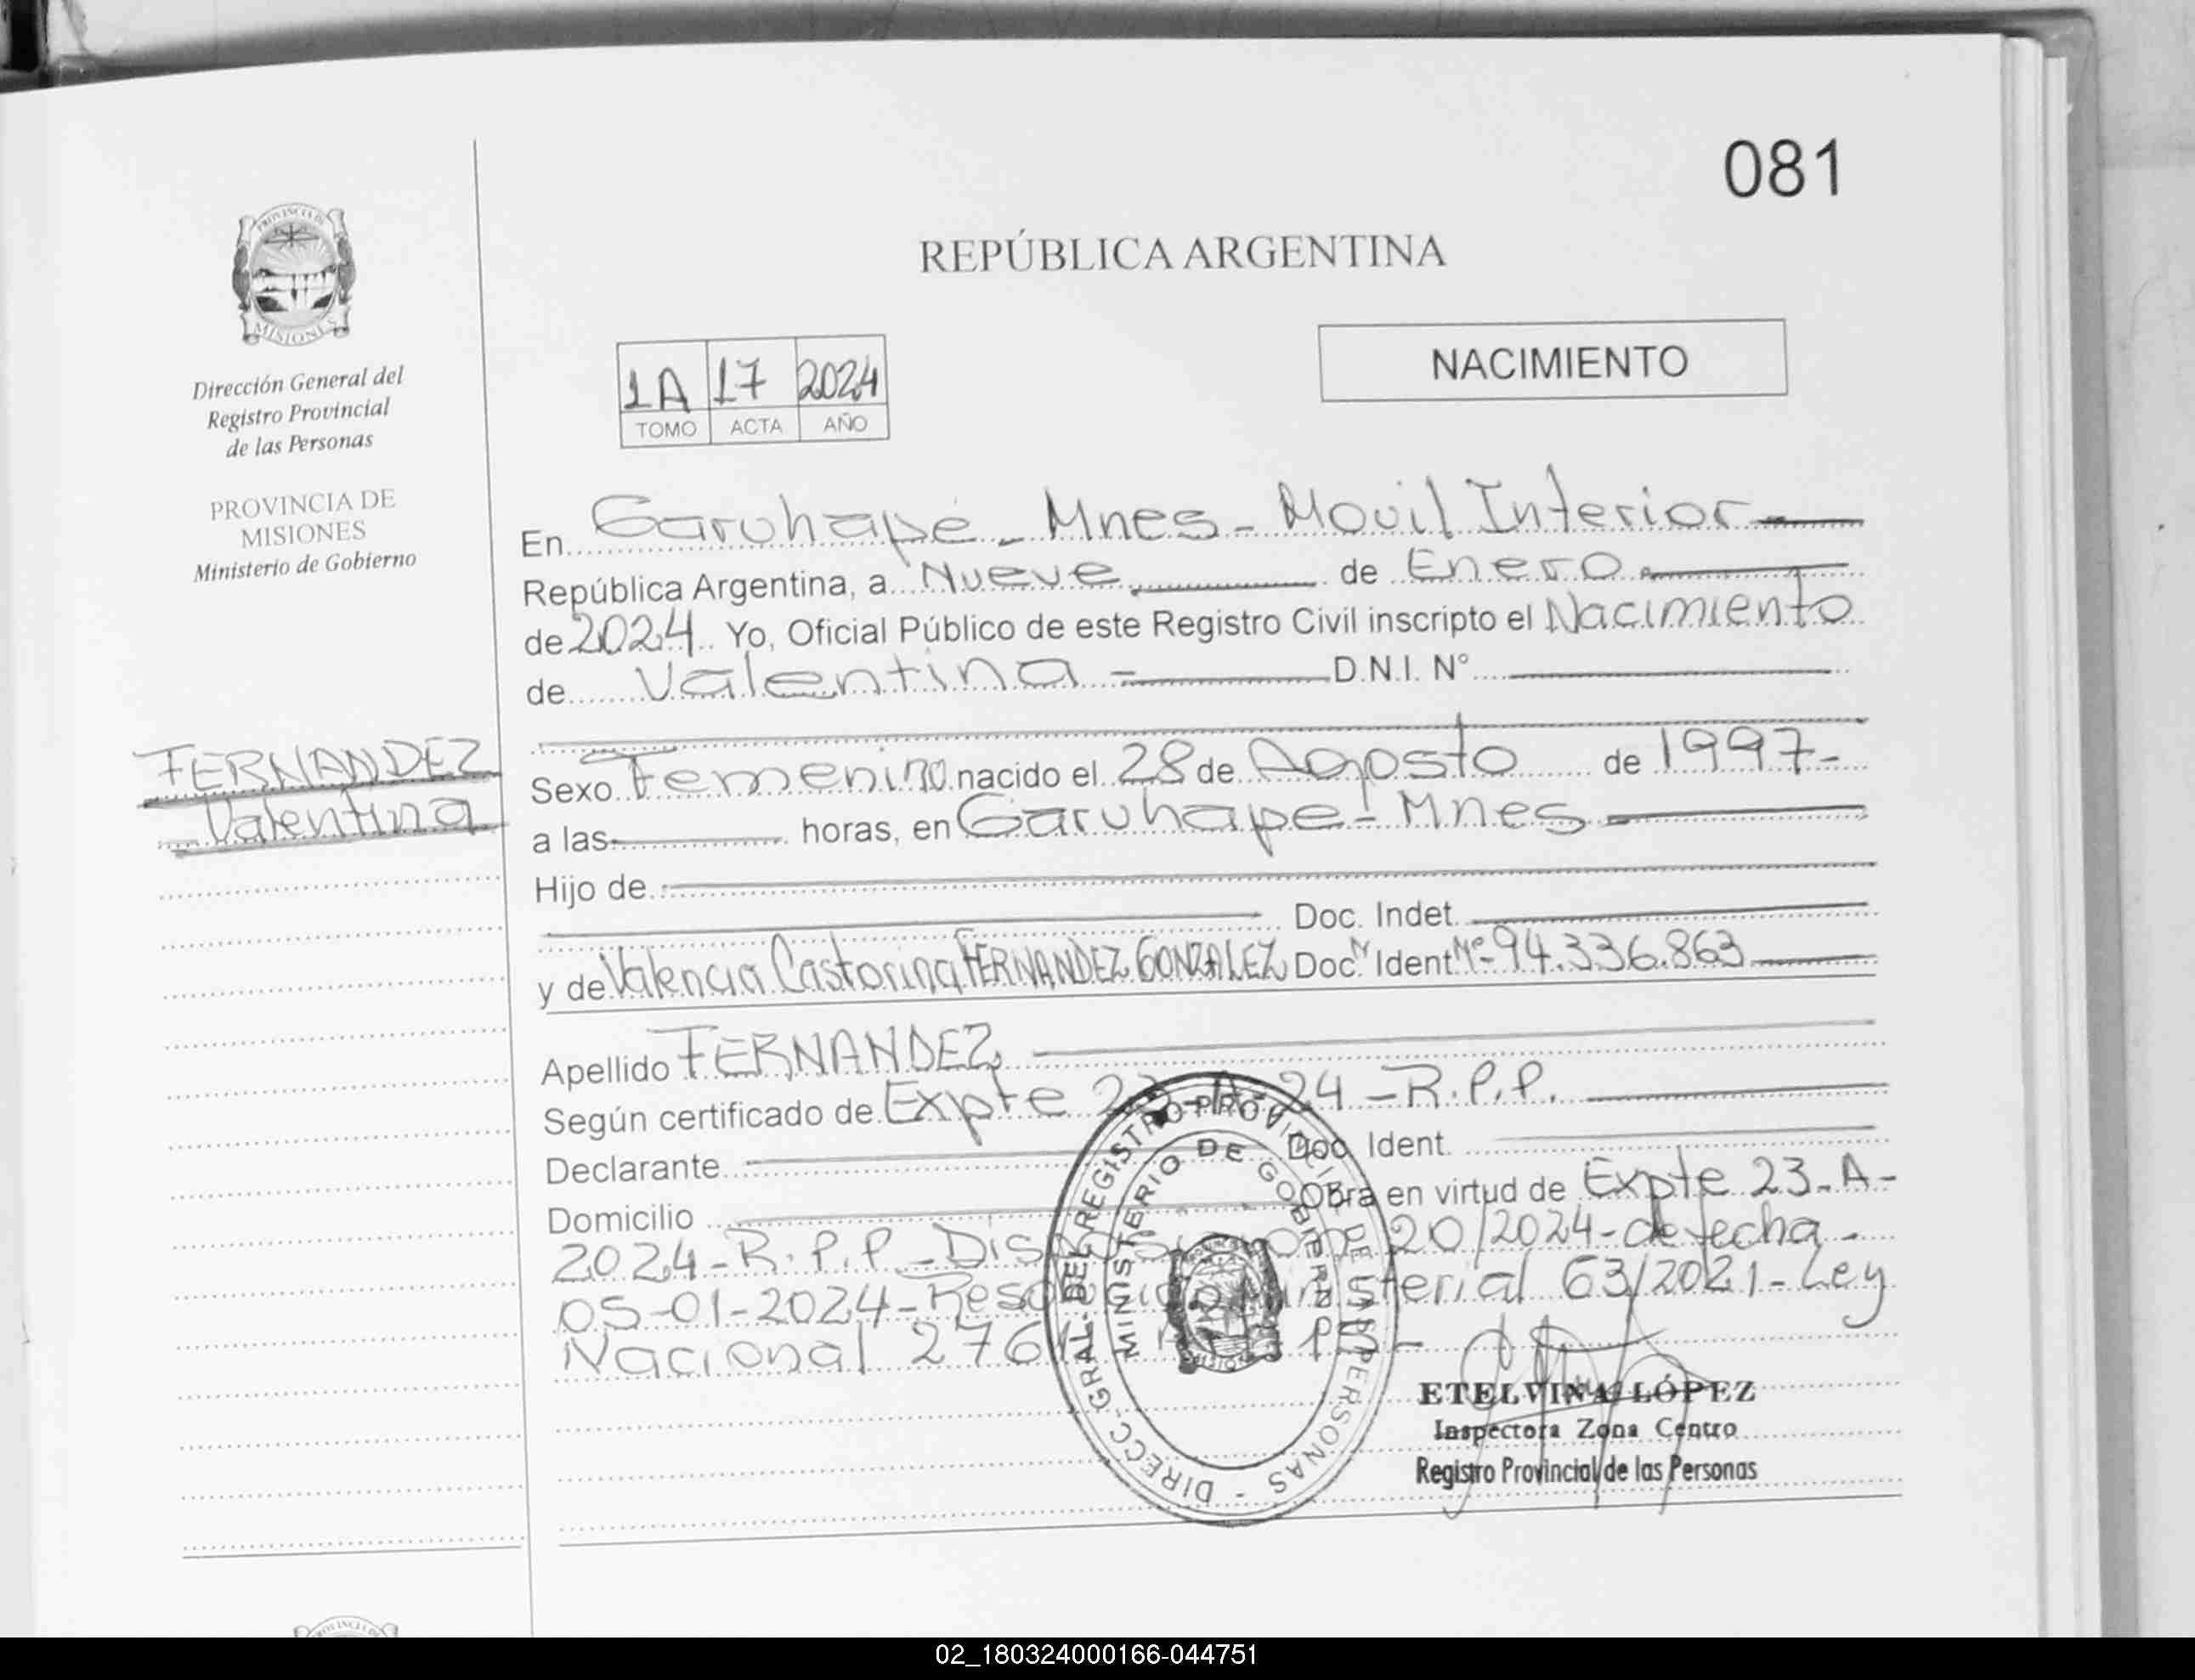 081
PROVINCIA DE
MISIONES
Dirección General del
Registro Provincial
de las Personas
PROVINCIA DE
MISIONES
Ministerio de Gobierno
FERNANDEZ
Valentina
REPÚBLICA ARGENTINA
NACIMIENTO
1A 17 2024
TOMO ACTA AÑO
En Garuhapé - Mnes - Movil Interior
República Argentina, a Nueve de Enero
de 2024 Yo, Oficial Público de este Registro Civil inscripto el Nacimiento
de Valentina D.N.I. N°
Sexo Femenino nacido el 28 de Agosto de 1997-
a las horas, en Garuhape - Mnes
Hijo de
Doc. Indet.
y de Valencia Castorina FERNANDEZ GONZALEZ Doc. Ident Nº 94.336.863
Apellido FERNANDEZ
Según certificado de Expte 23-A-24 - R.P.P.
Declarante Doc Ident.
Domicilio Obra en virtud de Expte 23-A-
2024-R.P.P- 20/2024-de fecha-
05-01-2024- 63/2021-Ley
Nacional
DIRECC. GRAL. DEL REGISTRO PROVINCIAL DE LAS PERSONAS -
MINISTERIO DE GOBIERNO
ETELVINA LÓPEZ
Inspectora Zona Centro
Registro Provincial de las Personas
02_180324000166-044751